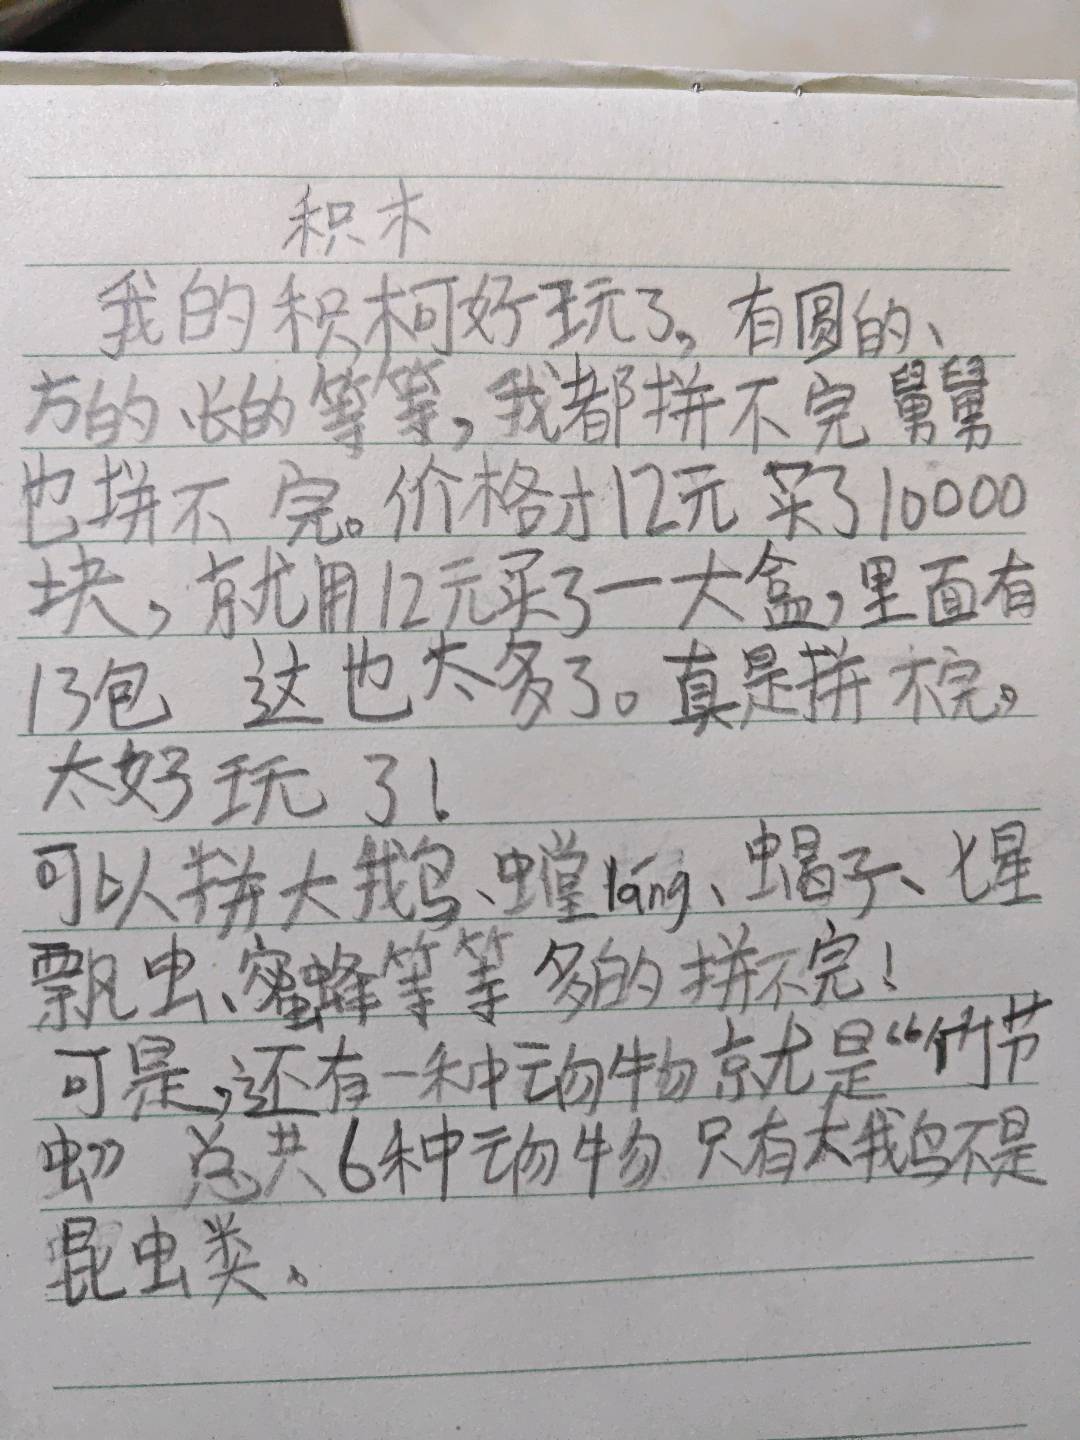 积木
我的积木可好玩了,有圆的、
方的、长的等等,我都拼不完舅舅
也拼不完。价格才12元买了10000
块,就用12元买了一大盒,里面有
13包 这也太多了。真是拼不完。
太好玩了!
可以拼大鹅、螳láng、蝎子、七星
瓢虫、蜜蜂等等多的拼不完!
可是,还有一种动物就是“竹节
虫” 总共6种动物只有大鹅不是
昆虫类。